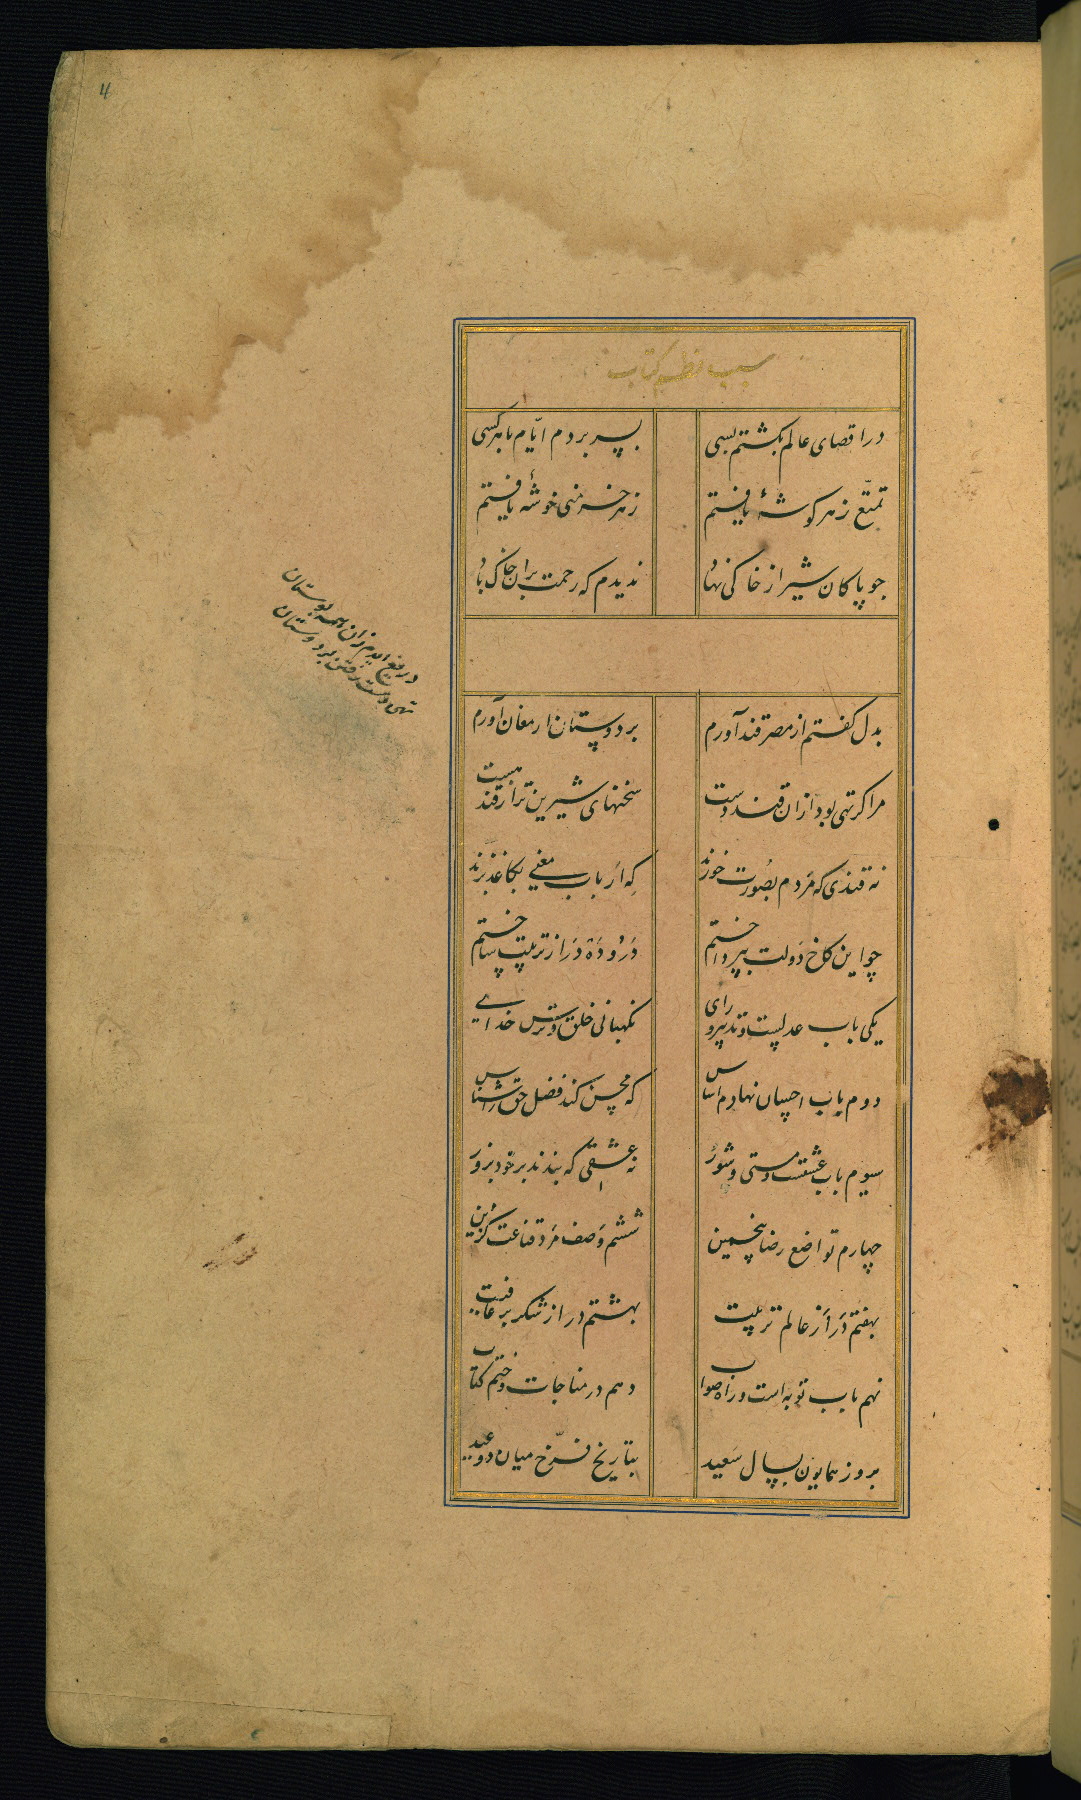 4
سبب نظم کتاب
در اقصای عالم بگشتم بسی بسر بردم ایّام با هر کسی
تمتّع ز هر گوشهٔ یافتم ز هر خرمنی خوشهٔ یافتم
چو پاکان شیراز خاکی نهاد ندیدم که رحمت بران خاک باد
دریغ آمدم زان همه بوستان
تهی دست رفتن بر دوستان
بدل گفتم از مصر قند آورم بر دوستان ارمغان آورم
مرا گر تهی بود ازان قند دست سخنهای شیرین تر از قند هست
نه قندی که مردم بصورت خورند که ارباب معنی بکاغذ برند
چو این کاخ دولت بپرداختم درو ده در از تربیت ساختم
یکی باب عدلست و تدبیر و رای نگهبانی خلق و ترس خدای
دوم باب احسان نهادم اساس که محسن کند فضل حق را سپاس
سیوم باب عشقست و مستی و شور نه عشقی که بندند بر خود بزور
چهارم تواضع رضا پنجمین ششم وصف مرد قناعت گزین
بهفتم در از عالم تربیت بهشتم در از شکر بر عافیت
نهم باب توبه است و راه صواب دهم در مناجات و ختم کتاب
بروز همایون بسال سعید بتاریخ فرّخ میان دو عید